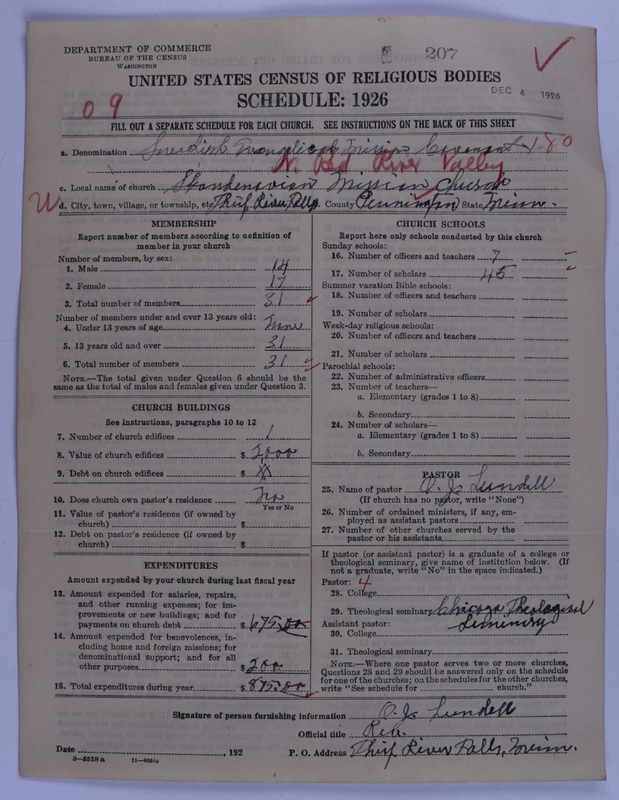 DEPARTMENT OF COMMERCE
BUREAU OF THE CENSUS
WASHINGTON
207
UNITED STATES CENSUS OF RELIGIOUS BODIES
SCHEDULE: 1926
DEC 4 1926
09
FILL OUT A SEPARATE SCHEDULE FOR EACH CHURCH. SEE INSTRUCTIONS ON THE BACK OF THIS SHEET
a. Denomination Swedish Evangelical Mission Covenant 1-80
N. Red River Valley
c. Local name of church Skandenavian Mission Church
d. City, town, village, or township, etc. Thief River Falls County Pennington State Minn.
MEMBERSHIP
Report number of members according to definition of member in your church
Number of members, by sex:
1. Male 14
2. Female 17
3. Total number of members 31
Number of members under and over 13 years old:
4. Under 13 years of age None
5. 13 years old and over 31
6. Total number of members 31
NOTE.—The total given under Question 6 should be the same as the total of males and females given under Question 3.
CHURCH BUILDINGS
See instructions, paragraphs 10 to 12
7. Number of church edifices 1
8. Value of church edifices $ 2,000
9. Debt on church edifices $
10. Does church own pastor's residence No
Yes or No
11. Value of pastor's residence (if owned by church) $
12. Debt on pastor's residence (if owned by church) $
EXPENDITURES
Amount expended by your church during last fiscal year
13. Amount expended for salaries, repairs, and other running expenses; for improvements or new buildings; and for payments on church debt $ 675.00
14. Amount expended for benevolences, including home and foreign missions; for denominational support; and for all other purposes $ 200
15. Total expenditures during year $ 875.00
CHURCH SCHOOLS
Report here only schools conducted by this church
Sunday schools:
16. Number of officers and teachers 7
17. Number of scholars 45
Summer vacation Bible schools:
18. Number of officers and teachers
19. Number of scholars
Week-day religious schools:
20. Number of officers and teachers
21. Number of scholars
Parochial schools:
22. Number of administrative officers
23. Number of teachers—
a. Elementary (grades 1 to 8)
b. Secondary
24. Number of scholars—
a. Elementary (grades 1 to 8)
b. Secondary
PASTOR
25. Name of pastor O. J. Lundell
(If church has no pastor, write "None")
26. Number of ordained ministers, if any, employed as assistant pastors
27. Number of other churches served by the pastor or his assistants
If pastor (or assistant pastor) is a graduate of a college or theological seminary, give name of institution below. (If not a graduate, write "No" in the space indicated.)
Pastor: 4
28. College
29. Theological seminary Chicago Theological
Assistant pastor: Seminery
30. College
31. Theological seminary
NOTE.—Where one pastor serves two or more churches, Questions 28 and 29 should be answered only on the schedule for one of the churches; on the schedules for the other churches, write "See schedule for church."
Signature of person furnishing information O. J. Lundell
Official title Rev.
Date , 192 P. O. Address Thief River Falls, Minn.
8-5518 a 11-9084a